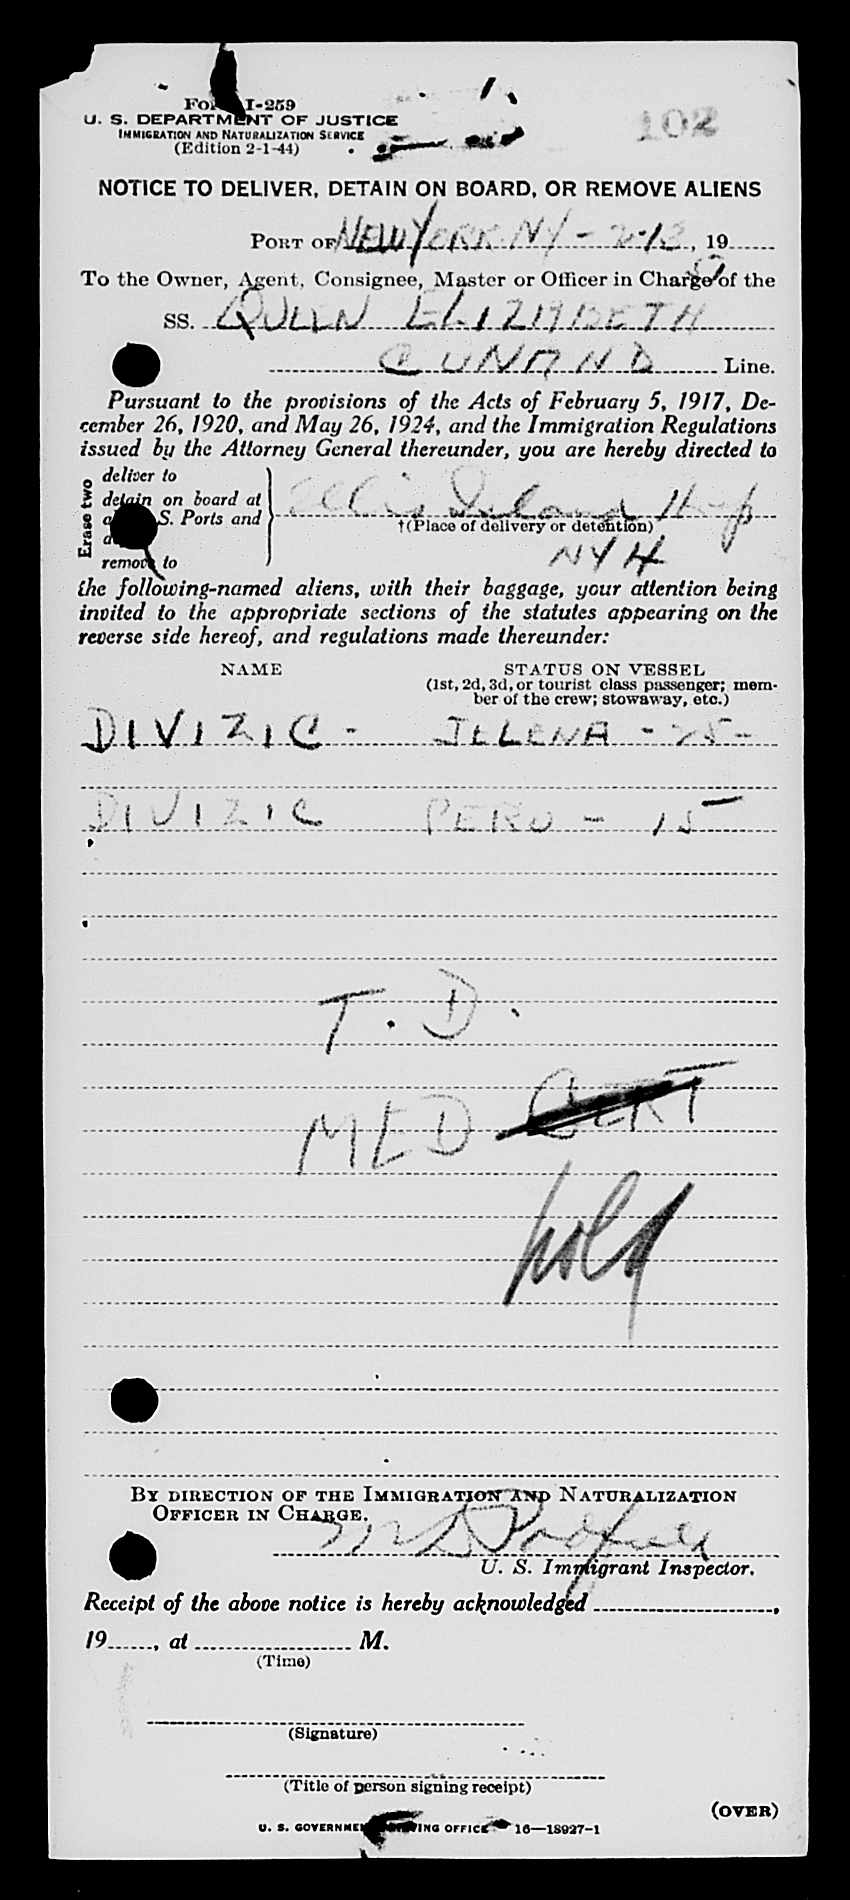 Form I-259
U. S. DEPARTMENT OF JUSTICE
IMMIGRATION AND NATURALIZATION SERVICE
(Edition 2-1-44)
102
NOTICE TO DELIVER, DETAIN ON BOARD, OR REMOVE ALIENS
PORT OF NEW YORK NY - 2-13, 19
To the Owner, Agent, Consignee, Master or Officer in Charge of the
SS. QUEEN ELIZABETH
CUNARD Line.
Pursuant to the provisions of the Acts of February 5, 1917, De-
cember 26, 1920, and May 26, 1924, and the Immigration Regulations
issued by the Attorney General thereunder, you are hereby directed to
Erase two
deliver to
detain on board at
S. Ports and
remove to
Ellis Island Hosp
†(Place of delivery or detention)
NYH
the following-named aliens, with their baggage, your attention being
invited to the appropriate sections of the statutes appearing on the
reverse side hereof, and regulations made thereunder:
NAME STATUS ON VESSEL
(1st, 2d, 3d, or tourist class passenger; mem-
ber of the crew; stowaway, etc.)
DIVIZIC - JELENA - 25 -
DIVIZIC PERO - 15 -
T. D.
MED CERT
hold
BY DIRECTION OF THE IMMIGRATION AND NATURALIZATION
OFFICER IN CHARGE.
U. S. Immigrant Inspector.
Receipt of the above notice is hereby acknowledged ,
19 , at M.
(Time)
(Signature)
(Title of person signing receipt)
(OVER)
U. S. GOVERNMENT PRINTING OFFICE 16—18927-1